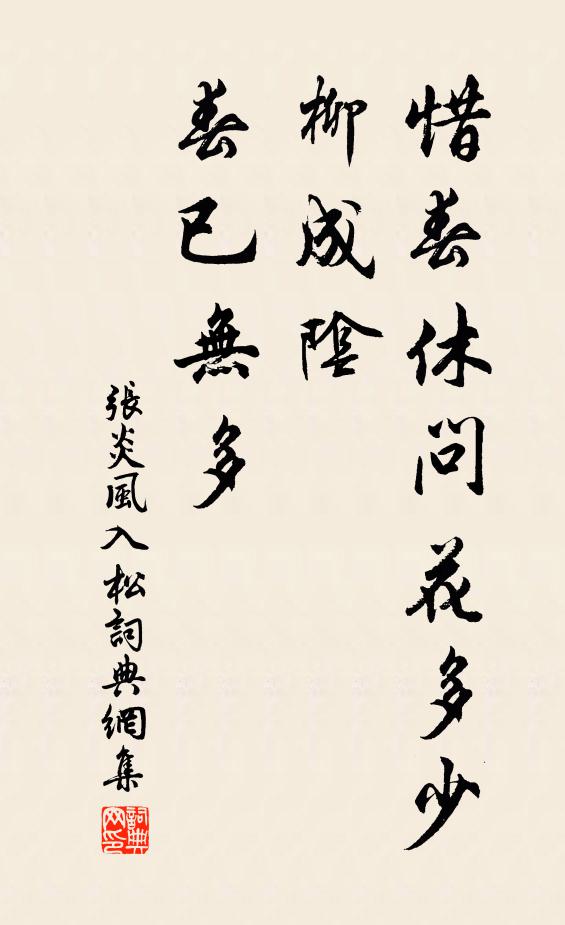 惜春休問花多少
柳成陰
春已無多
張炎風入松詞典網集
詞典網印